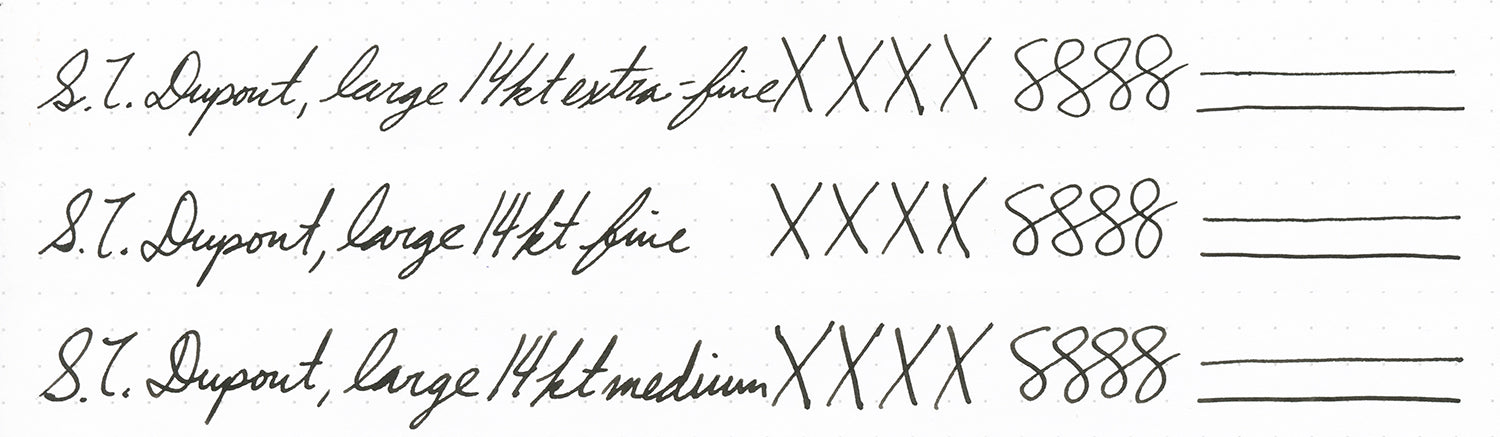 S.T. Dupont, large 14kt extra-fine XXXX 8888
S.T. Dupont, large 14kt fine XXXX 8888
S.T. Dupont, large 14kt medium XXXX 8888